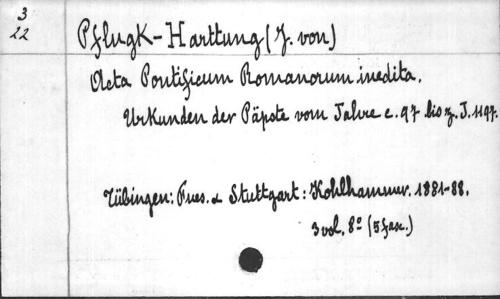 3
22
Pflugk-Harttung (J. von)
Acta Pontificum Romanorum inedita.
Urkunden der Päpste vom Jahre c. 97 bis z. J. 1197.
Tübingen: Fues. & Stuttgart: Kohlhammer. 1881-88.
3 vol. 8° (5 fasc.)